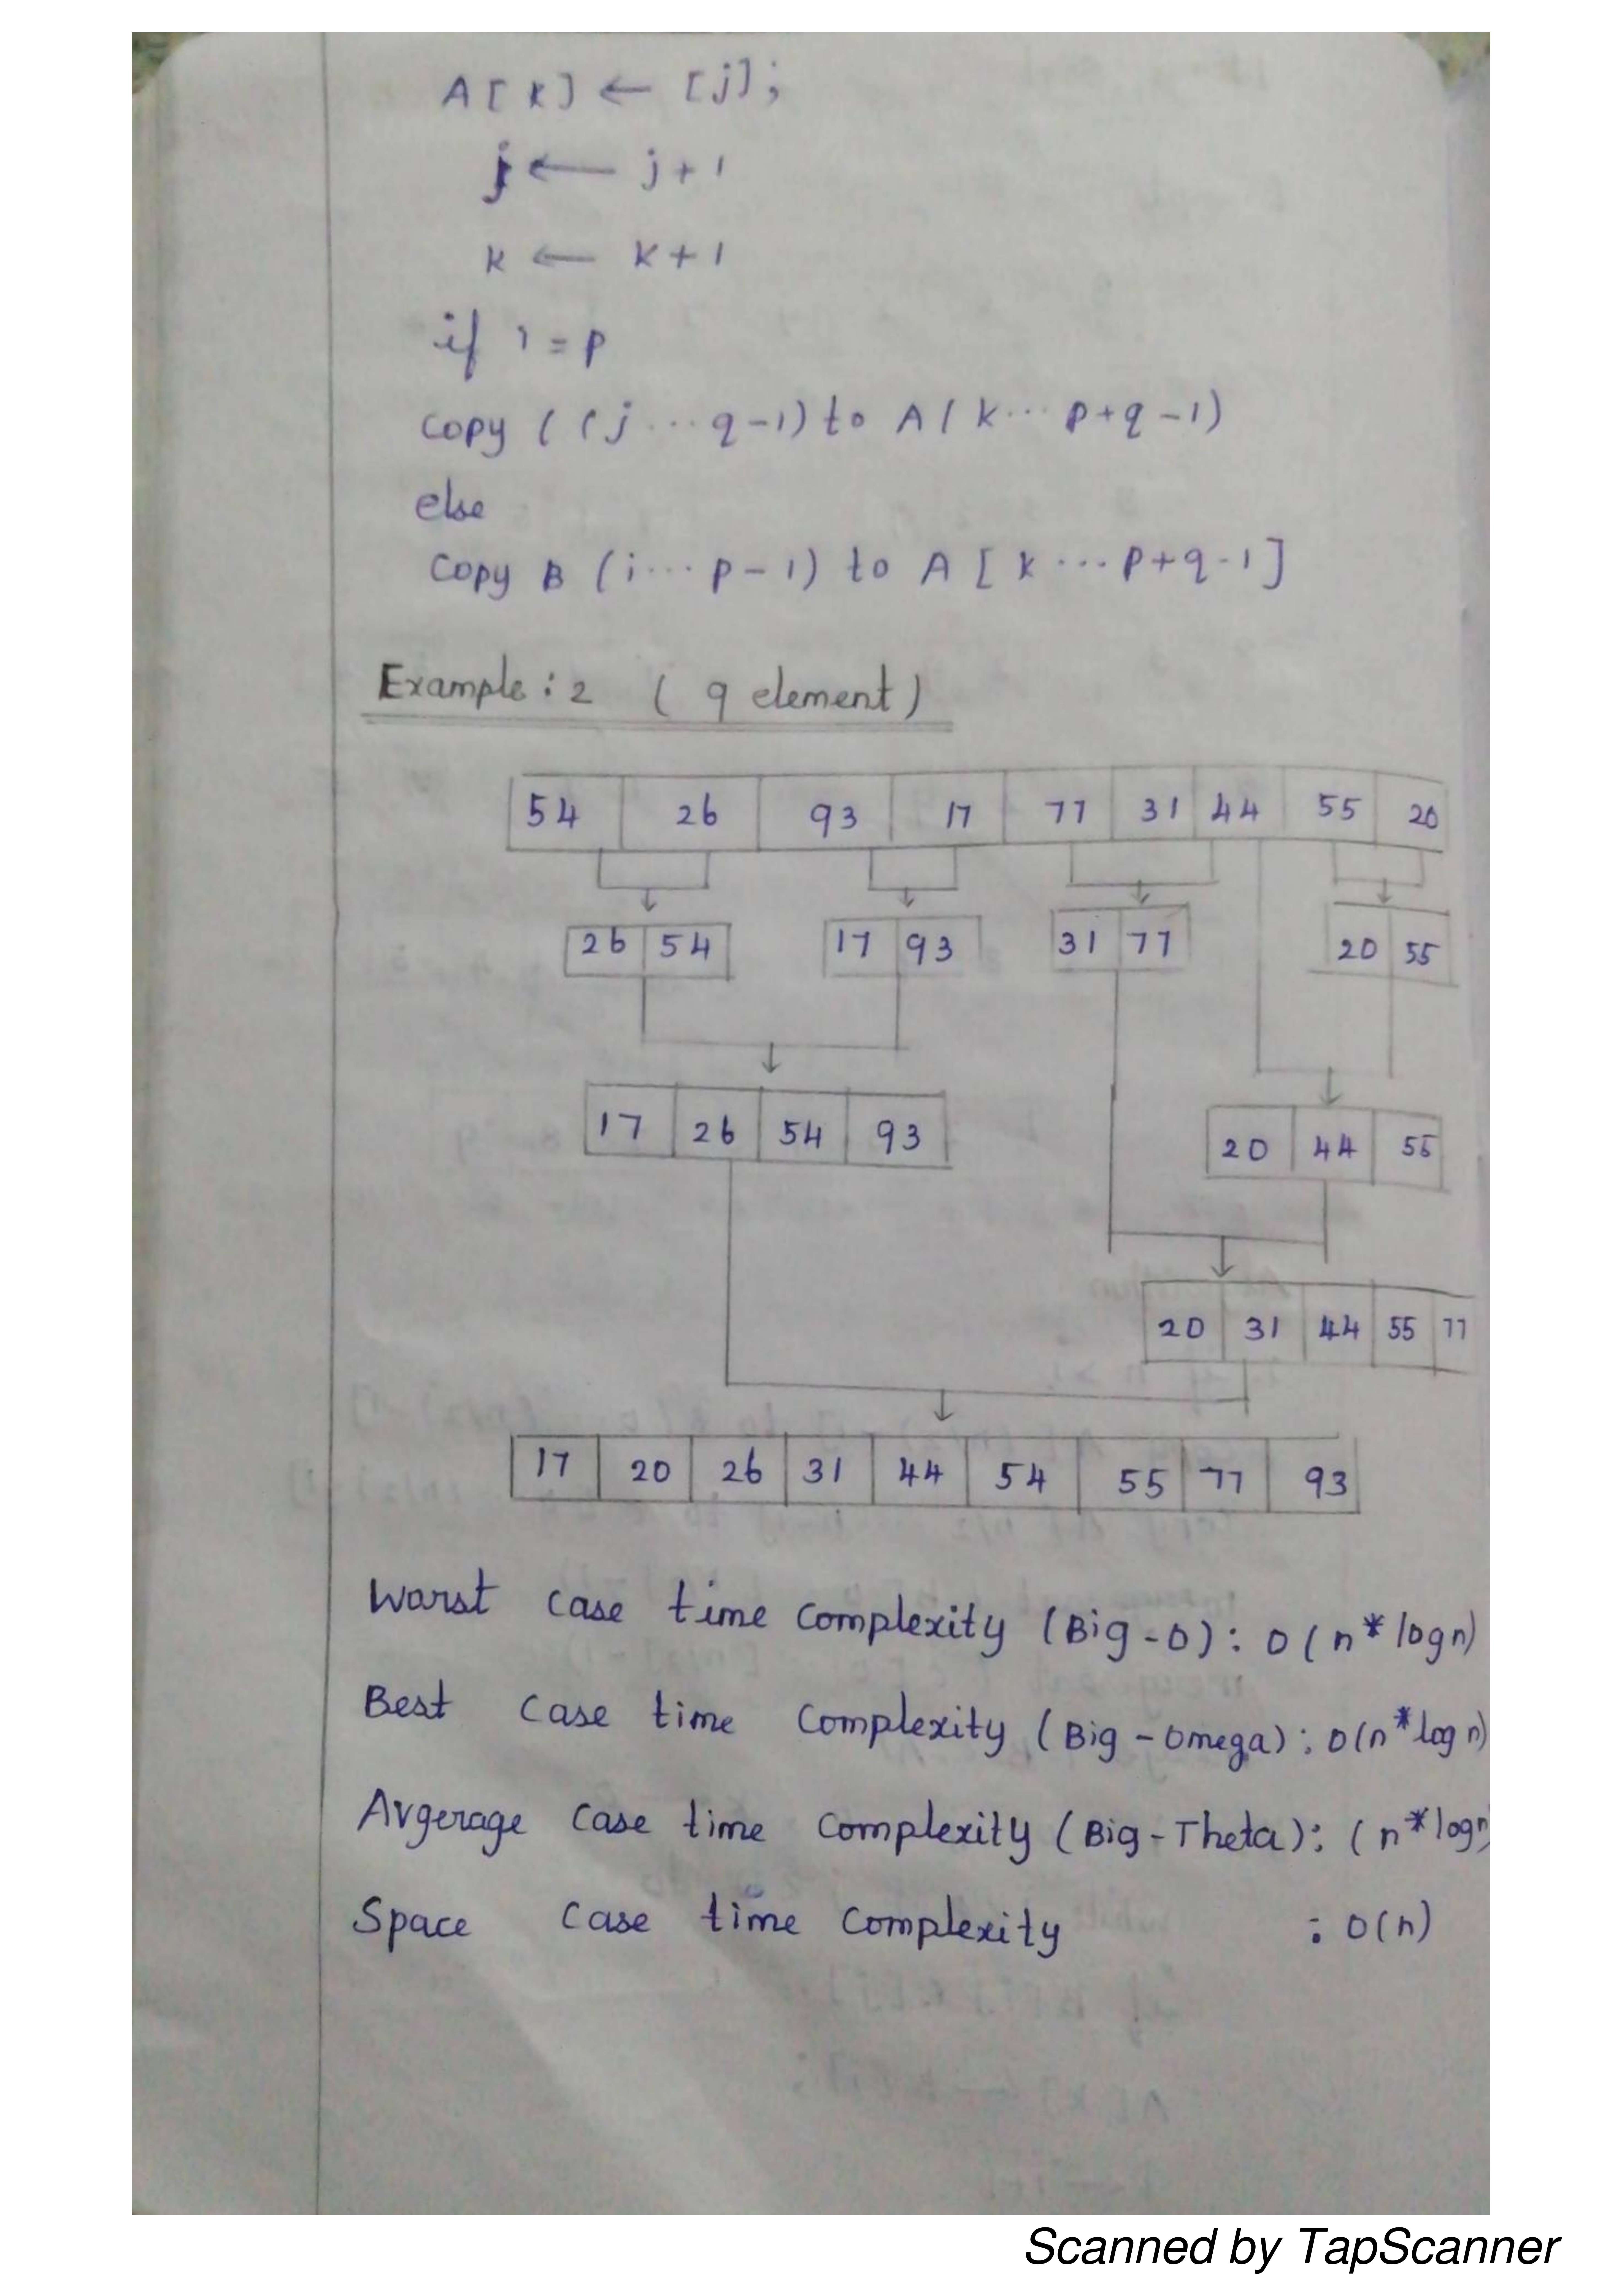 A[K] ← [j];
j ← j+1
K ← K+1
if i = p
Copy ( (j ... q-1) to A ( K ... p+q-1)
else
Copy B (i ... p-1) to A [ K ... p+q-1]
Example: 2 ( 9 element)
54 26 93 17 77 31 44 55 20
26 54 17 93 31 77 20 55
17 26 54 93 20 44 55
20 31 44 55 77
17 20 26 31 44 54 55 77 93
Warst case time complexity (Big-O): O(n*logn)
Best case time complexity (Big-Omega): O(n*log n)
Avgerage case time complexity (Big-Theta): (n*logn)
Space case time complexity : O(n)
Scanned by TapScanner